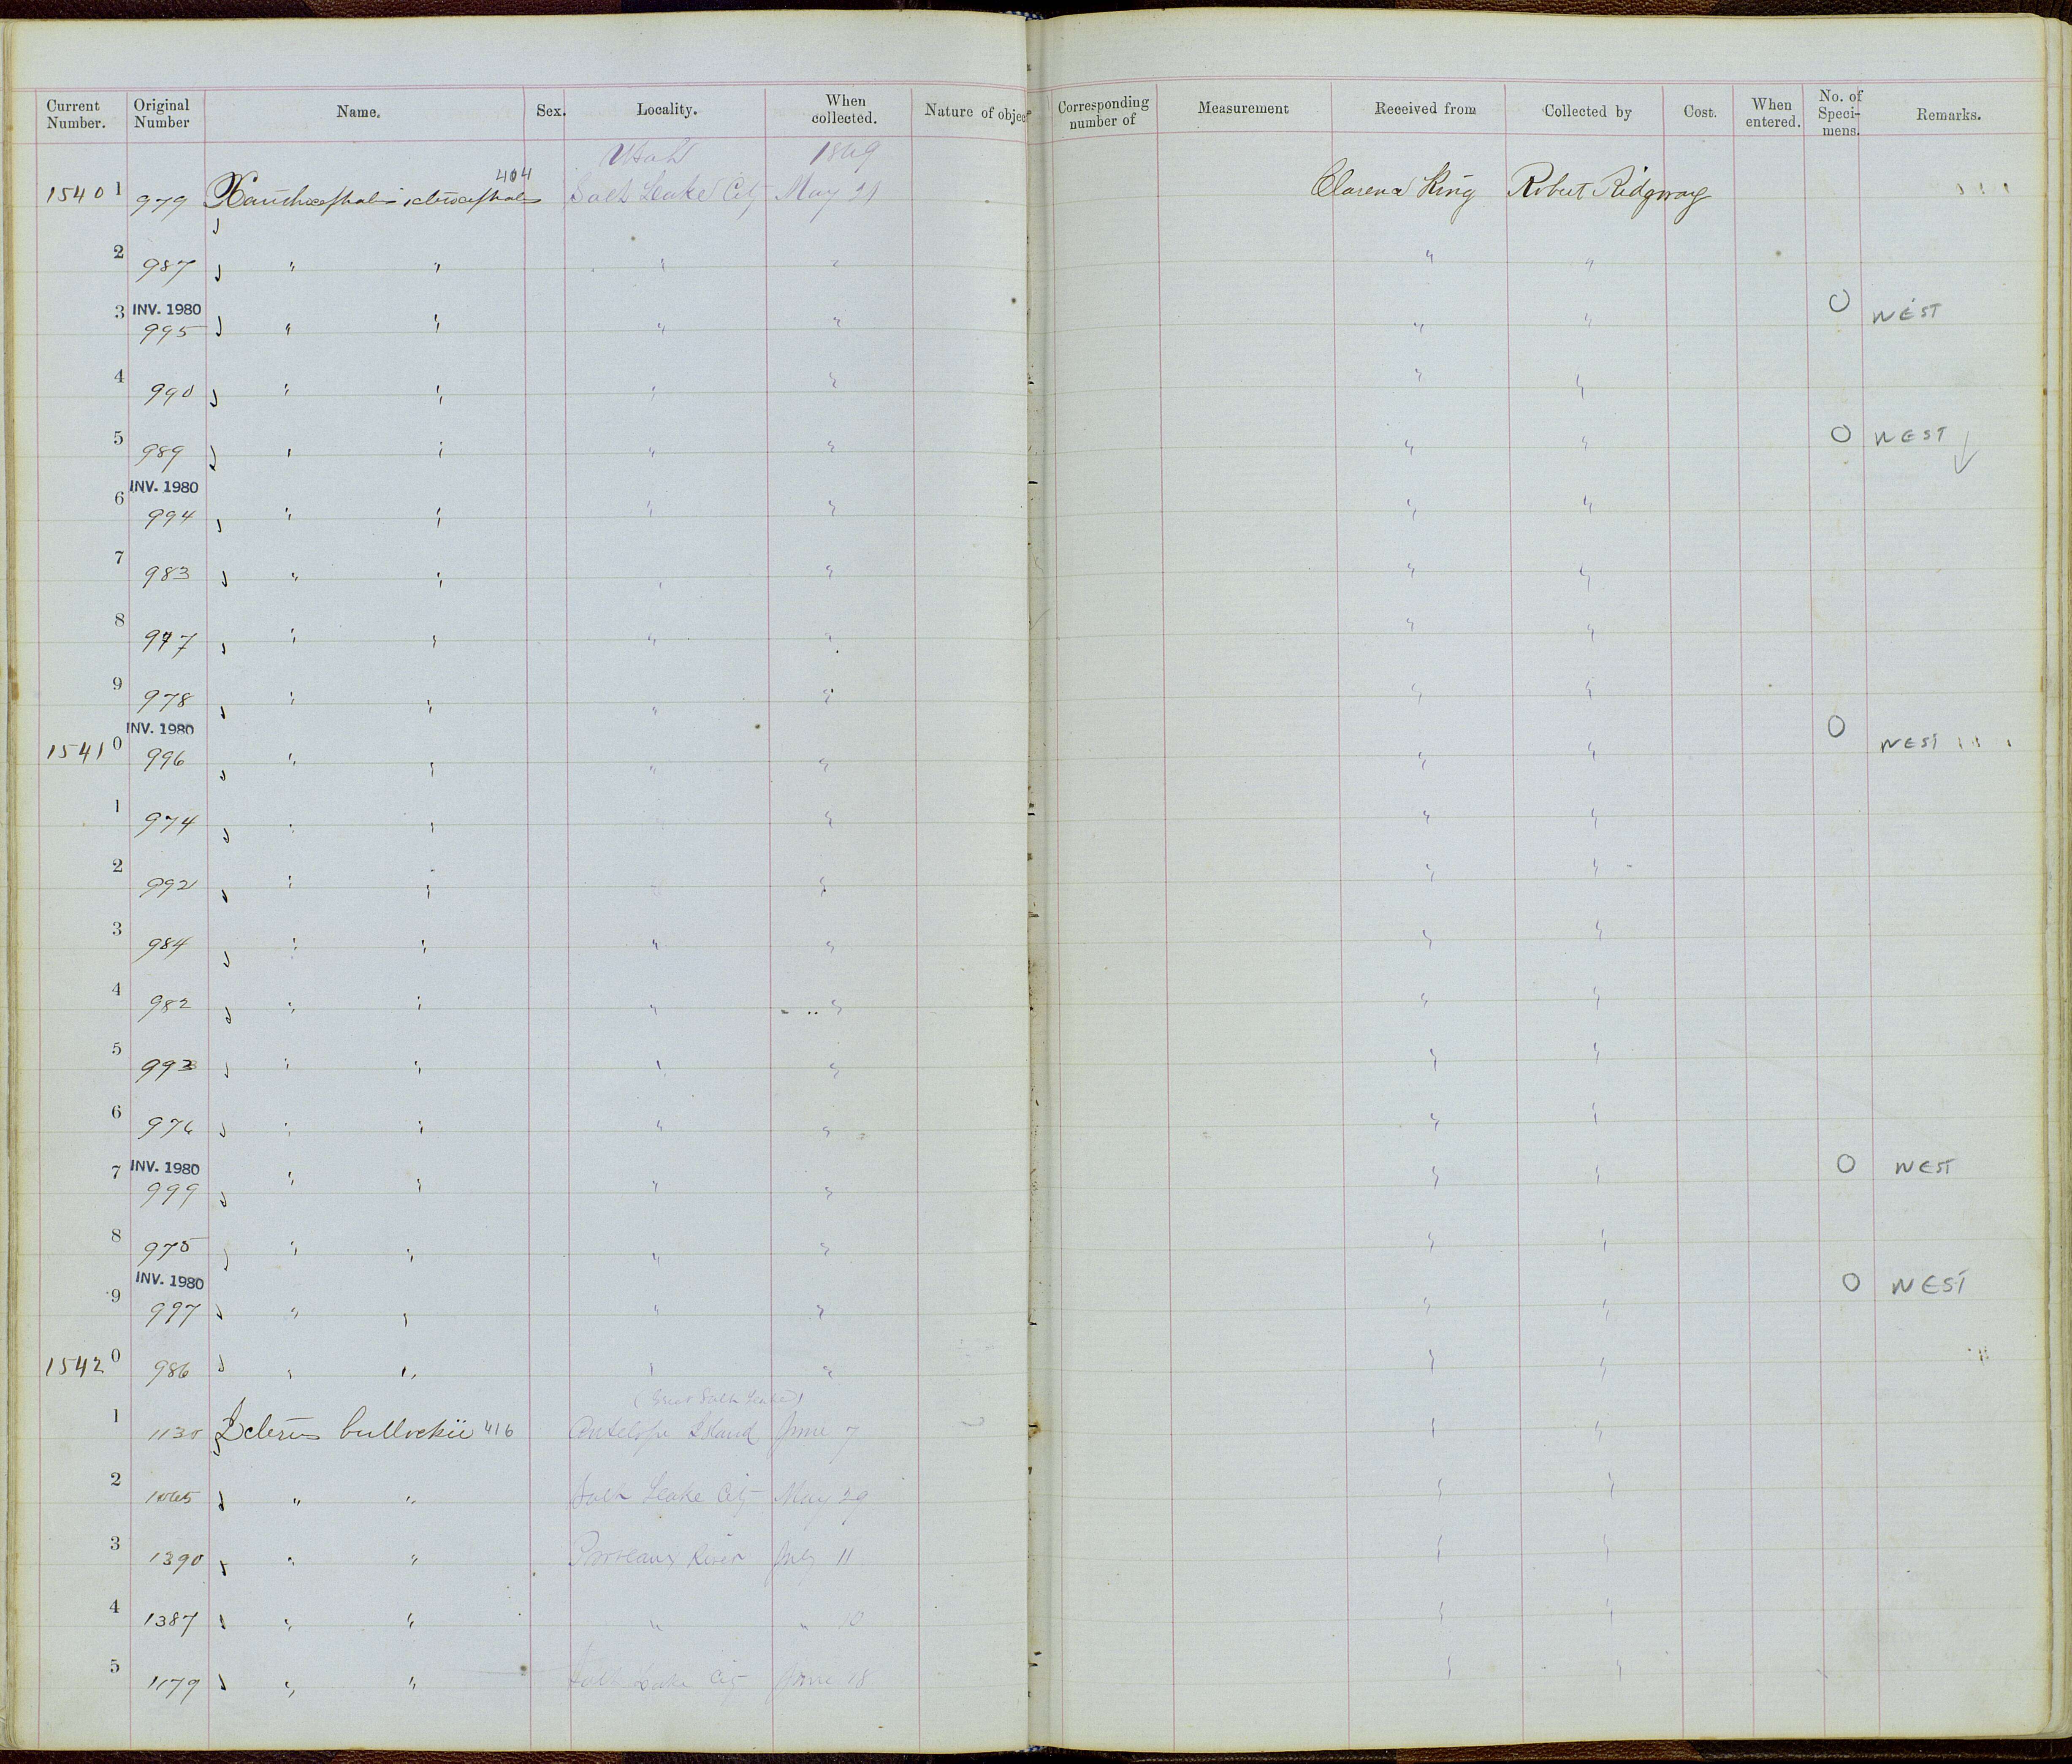 Current Number. Original Number Name. Sex. Locality. When collected. Nature of objec Corresponding number of Measurement Received from Collected by Cost. When entered. No. of Speci-mens. Remarks.
Utah 1869
15401 979 Xanthocephalus icterocephalus 404 Salt Lake City May 21 Clarence King Robert Ridgway
2 987 " " " " " "
3 INV. 1980 995 " " " " " " 0 NEST
4 990 " " " " " "
5 989 " " " " " " 0 NEST
6 INV. 1980 994 " " " " " "
7 983 " " " " " "
8 977 " " " " " "
9 978 " " " " " "
15410 INV. 1980 996 " " " " " " 0 NEST
1 974 " " " " "
2 992 " " " " " "
3 984 " " " " " "
4 982 " " " " " "
5 993 " " " " " "
6 976 " " " " " "
7 INV. 1980 999 " " " " " " 0 NEST
8 975 " " " " " "
9 INV. 1980 997 " " " " " " 0 NEST
15420 986 " " " " " "
(Great Salt Lake)
1 1130 Icterus bullockii 416 Antelope Island June 7 " "
2 1065 " " Salt Lake City May 29 " "
3 1390 " " River July 11 " "
4 1387 " " " " 10 " "
5 1179 " " Salt Lake City June 18 " "